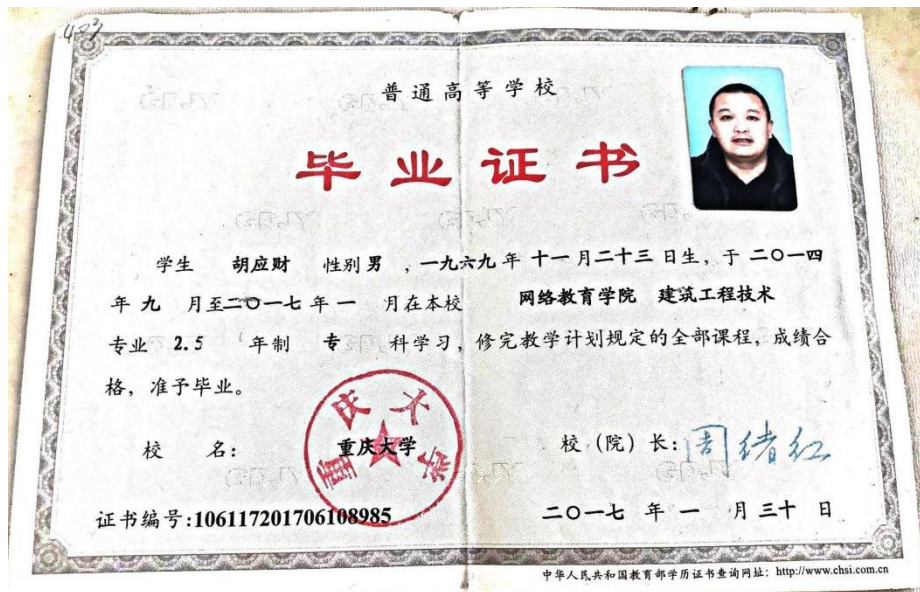 403
普通高等学校
毕业证书
学生 胡应财 性别 男 ，一九六九 年 十一 月 二十三 日生，于 二〇一四
年 九 月至 二〇一七 年 一 月在本校 网络教育学院 建筑工程技术
专业 2.5 年制 专 科学习，修完教学计划规定的全部课程，成绩合
格，准予毕业。
重庆大学
校 名： 重庆大学 校（院）长：周绪红
证书编号:106117201706108985 二〇一七 年 一 月 三十 日
中华人民共和国教育部学历证书查询网址：http://www.chsi.com.cn